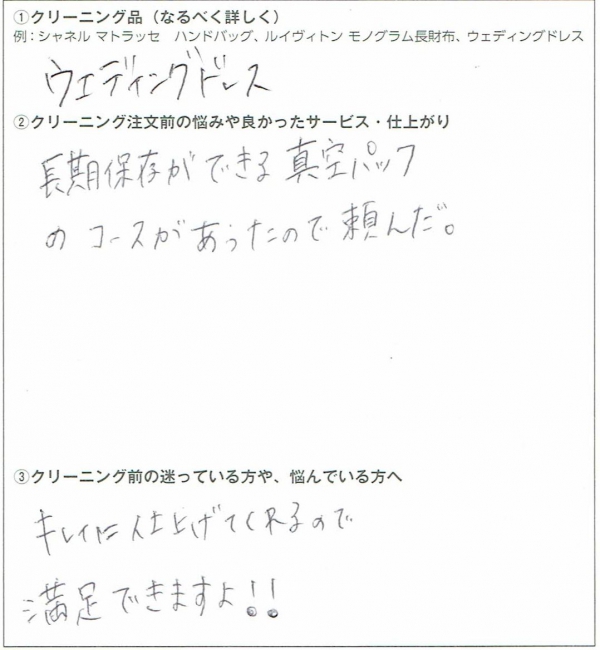 ①クリーニング品（なるべく詳しく）
例：シャネル マトラッセ　ハンドバッグ、ルイヴィトン モノグラム長財布、ウェディングドレス
ウエディングドレス
②クリーニング注文前の悩みや良かったサービス・仕上がり
長期保存ができる真空パック
のコースがあったので頼んだ。
③クリーニング前の迷っている方や、悩んでいる方へ
キレイに仕上げてくれるので
満足できますよ!!